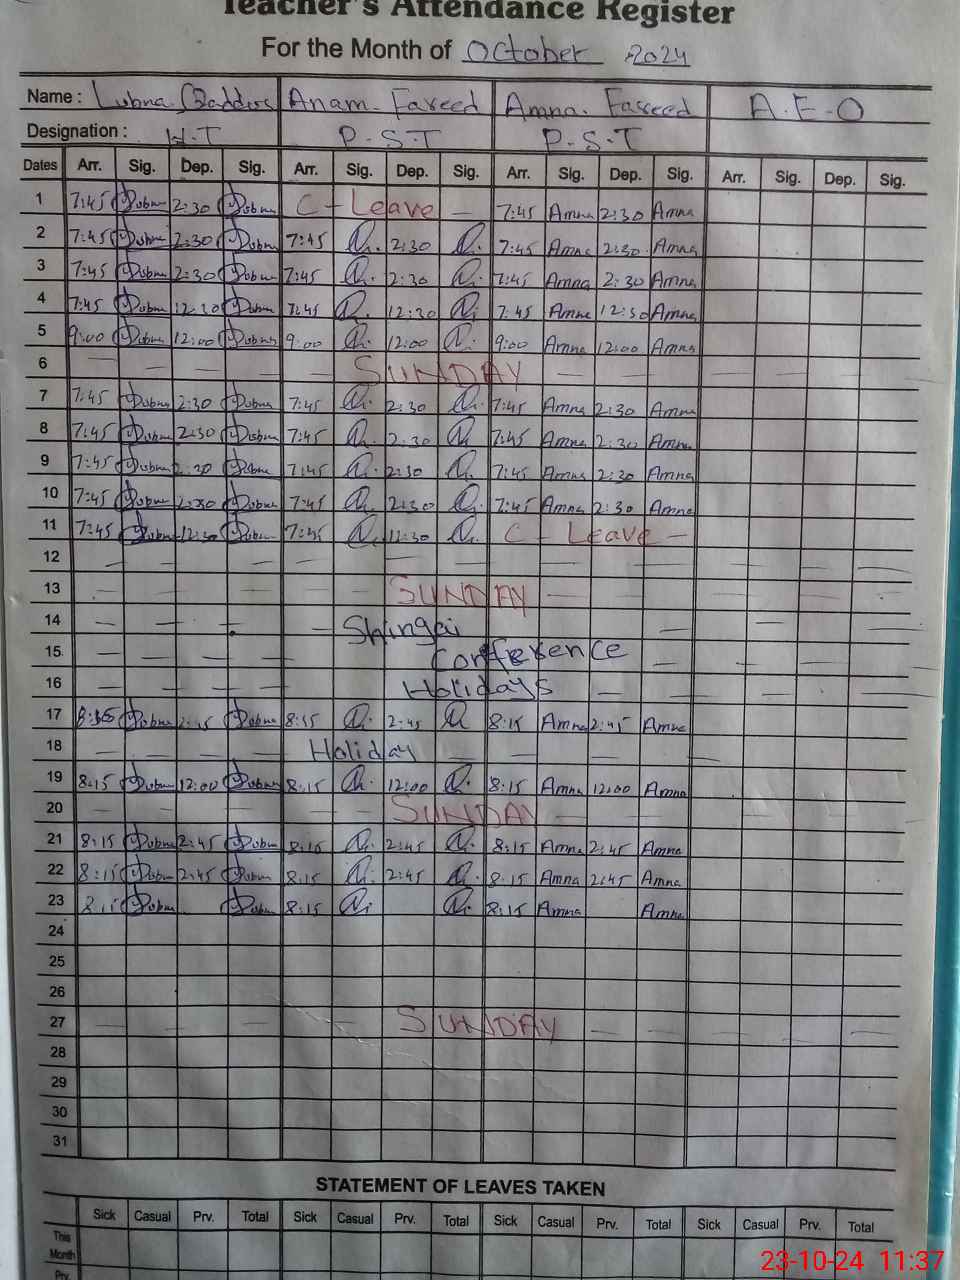 Teacher's Attendance Register
For the Month of October 2024
Name : Lubna Anam. Fareed Amna. Fareed A.E.O
Designation : H.T P.S.T P.S.T
Dates Arr. Sig. Dep. Sig. Arr. Sig. Dep. Sig. Arr. Sig. Dep. Sig. Arr. Sig. Dep. Sig.
1 7:45 Lubna 2:30 Lubna C - Leave - 7:45 Amna 2:30 Amna
2 7:45 Lubna 2:30 Lubna 7:45 2:30 7:45 Amna 2:30 Amna
3 7:45 Lubna 2:30 Lubna 7:45 2:30 7:45 Amna 2:30 Amna
4 7:45 Lubna 12:30 Lubna 7:45 12:30 7:45 Amna 12:30 Amna
5 9:00 Lubna 12:00 Lubna 9:00 12:00 9:00 Amna 12:00 Amna
6 SUNDAY
7 7:45 Lubna 2:30 Lubna 7:45 2:30 7:45 Amna 2:30 Amna
8 7:45 Lubna 2:30 Lubna 7:45 2:30 7:45 Amna 2:30 Amna
9 7:45 Lubna 2:30 Lubna 7:45 2:30 7:45 Amna 2:30 Amna
10 7:45 Lubna 2:30 Lubna 7:45 2:30 7:45 Amna 2:30 Amna
11 7:45 Lubna 12:30 Lubna 7:45 12:30 C - Leave -
12
13 SUNDAY
14 Shingai
15 Conference
16 Holidays
17 Lubna Lubna 8:15 2:45 8:15 Amna 2:45 Amna
18 Holiday
19 8:15 Lubna 12:00 Lubna 8:15 12:00 8:15 Amna 12:00 Amna
20 SUNDAY
21 8:15 Lubna 2:45 Lubna 8:15 2:45 8:15 Amna 2:45 Amna
22 8:15 Lubna 2:45 Lubna 8:15 2:45 8:15 Amna 2:45 Amna
23 8:15 Lubna Lubna 8:15 8:15 Amna Amna
24
25
26
27 SUNDAY
28
29
30
31
STATEMENT OF LEAVES TAKEN
Sick Casual Prv. Total Sick Casual Prv. Total Sick Casual Prv. Total Sick Casual Prv. Total
This
Month
Prv.
23-10-24 11:37